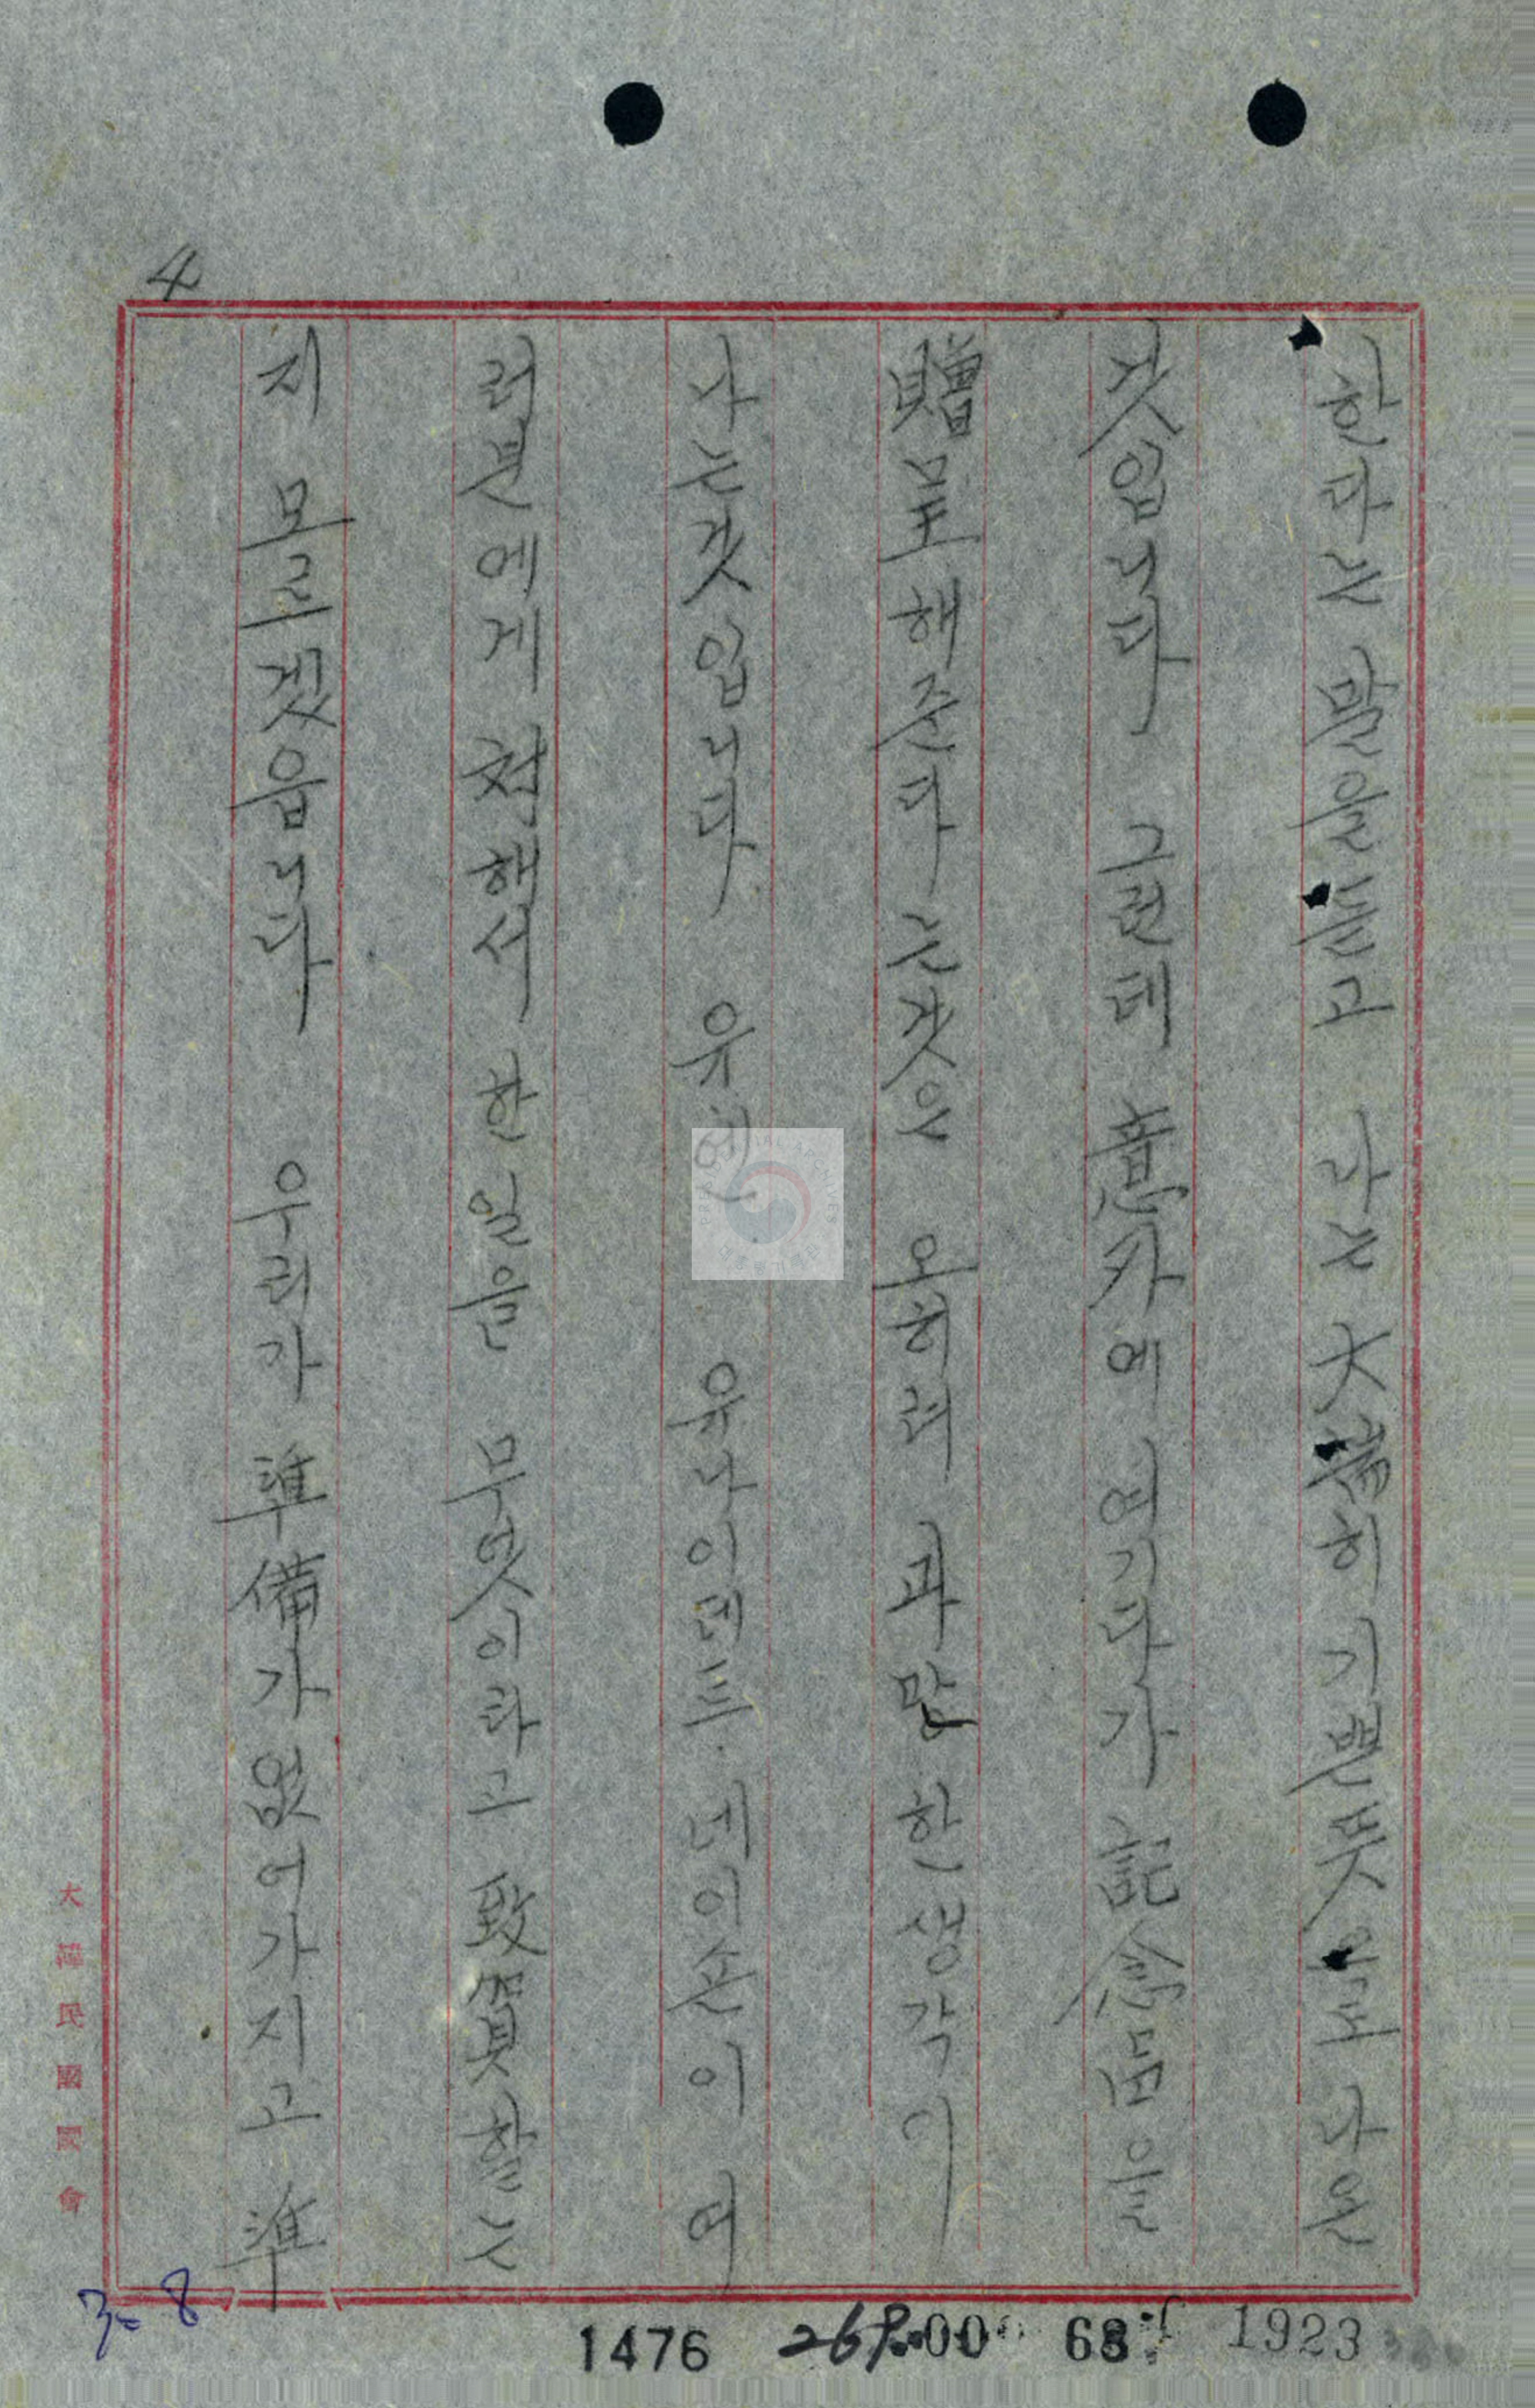 4
한다는 말을 듣고 나는 大端히 기쁜 뜻으로 나온
것입니다 그런데 意外에 여기다가 記念品을
贈呈해준다는 것은 오히려 과만한 생각이
나는것입니다 유엔 유나이데드·네이손이 여
러분에게 対해서 한 일을 무엇이라고 致賀할는
지 모르겟읍니다 우리가 準備가 없어가지고 準
大韓民國國會
3-8
1476 00 68 1923